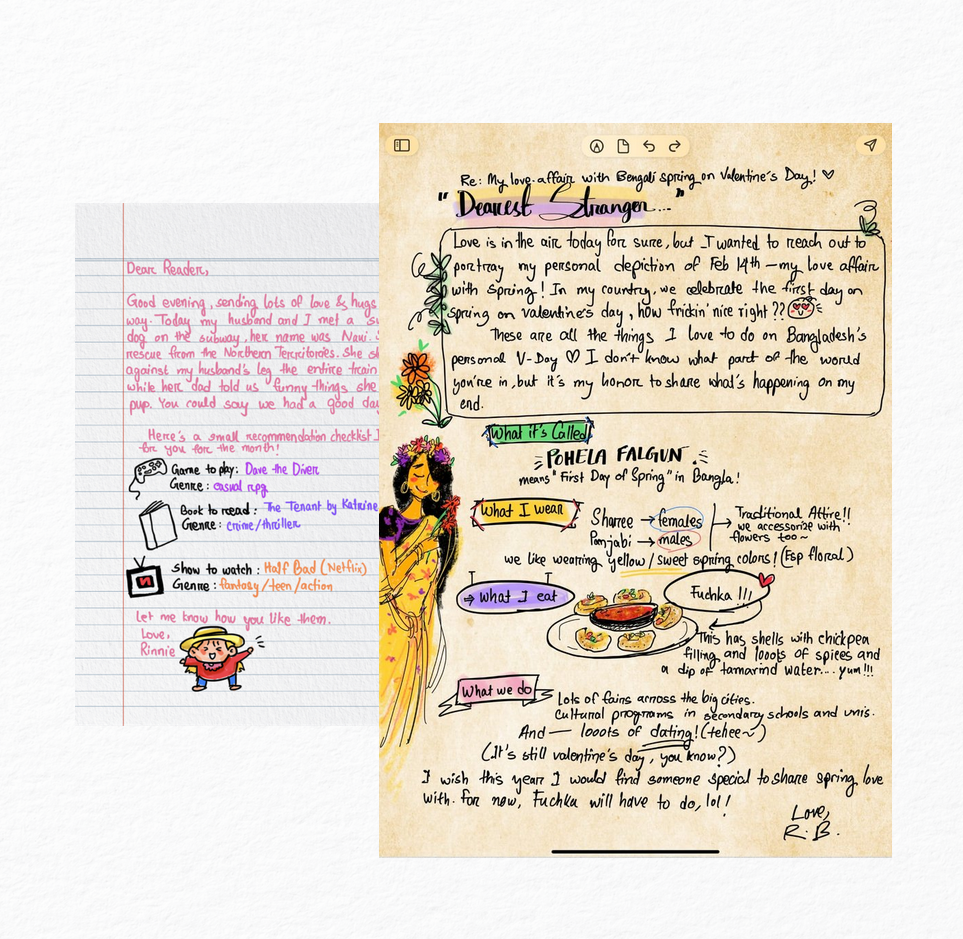 Dear Reader,
Good evening, sending lots of love & hugs
way. Today my husband and I met a
dog on the subway, her name was Navi.
rescue from the Northern Territories. She
against my husband's leg the entire train
while her dad told us funny things she
pup. You could say we had a good day
Here's a small recommendation checklist I
for you for the month!
Game to play: Dave the Diver
Genre: casual rpg
Book to read: The Tenant by Katrine
Genre: crime/thriller
Show to watch: Half Bad (Netflix)
Genre: fantasy/teen/action
let me know how you like them.
Love,
Rinnie
Re: My love affair with Bengali spring on Valentine's Day! ♡
"Dearest Stranger..."
Love is in the air today for sure, but I wanted to reach out to
portray my personal depiction of Feb 14th — my love affair
with spring! In my country, we celebrate the first day on
spring on valentine's day, how frickin' nice right??
These are all the things I love to do on Bangladesh's
personal V-Day ♡ I don't know what part of the world
you're in, but it's my honor to share what's happening on my
end.
What it's Called
POHELA FALGUN
means "First Day of Spring" in Bangla!
What I wear
Sharee → females
Panjabi → males
→ Traditional Attire!!
we accessorize with
flowers too ~
we like wearing yellow/sweet spring colors! (Esp floral)
⇒ What I eat
Fuchka !!!
This has shells with chickpea
filling and looots of spices and
a dip of tamarind water.... yum!!!
What we do
Lots of fairs across the big cities.
Cultural programs in secondary schools and unis.
And — looots of dating! (tehee~)
(It's still valentine's day, you know?)
I wish this year I would find someone special to share spring love
with. for now, Fuchka will have to do, lol!
Love,
R.B.